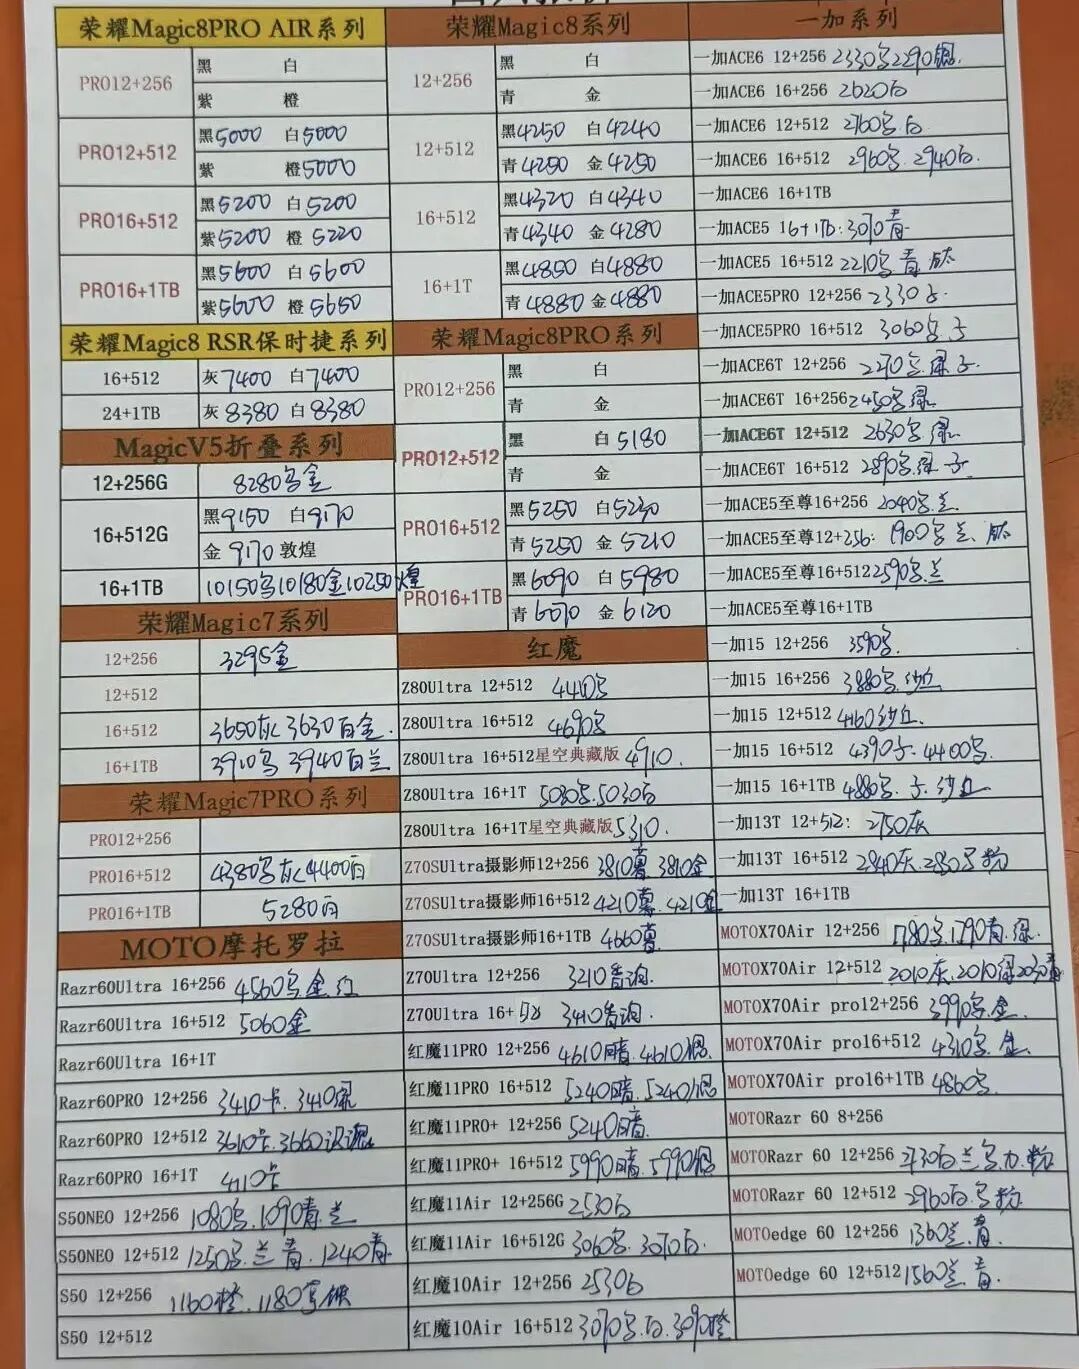 荣耀Magic8PRO AIR系列
PRO12+256
黑 白
紫 橙
PRO12+512
黑5000 白5000
紫 橙5000
PRO16+512
黑5200 白5200
紫5200 橙5220
PRO16+1TB
黑5600 白5600
紫5600 橙5650
荣耀Magic8 RSR保时捷系列
16+512 灰7400 白7400
24+1TB 灰8380 白8380
MagicV5折叠系列
12+256G 8280乌金
16+512G
黑9150 白9170
金9170敦煌
16+1TB 10150乌10180金10250煌
荣耀Magic7系列
12+256 3295金
12+512
16+512 3650灰 3630白金.
16+1TB 3910乌 3940白兰
荣耀Magic7PRO系列
PRO12+256
PRO16+512 4380乌灰4400白
PRO16+1TB 5280白
MOTO摩托罗拉
Razr60Ultra 16+256 4560乌.金.红
Razr60Ultra 16+512 5060金
Razr60Ultra 16+1T
Razr60PRO 12+256 3410卡.3410绿
Razr60PRO 12+512 3610卡.3660
Razr60PRO 16+1T 4110卡
S50NEO 12+256 1080乌.1090青.兰
S50NEO 12+512 1250乌.兰 青.1240青.
S50 12+256 1160橙.1180乌
S50 12+512
荣耀Magic8系列
12+256
黑 白
青 金
12+512
黑4250 白4240
青4250 金4250
16+512
黑4320 白4340
青4340 金4280
16+1T
黑4850 白4880
青4880 金4880
荣耀Magic8PRO系列
PRO12+256
黑 白
青 金
PRO12+512
黑 白5180
青 金
PRO16+512
黑5250 白5230
青5250 金5210
PRO16+1TB
黑6090 白5980
青6070 金6120
红魔
Z80Ultra 12+512 4440乌
Z80Ultra 16+512 4690乌
Z80Ultra 16+512星空典藏版 4910.
Z80Ultra 16+1T 5030乌.5030白
Z80Ultra 16+1T星空典藏版5310.
Z70SUltra摄影师12+256 3810 3810金
Z70SUltra摄影师16+512 4210 .4210金
Z70SUltra摄影师16+1TB 4660
Z70Ultra 12+256 3210
Z70Ultra 16+512 3410
红魔11PRO 12+256 4610暗.4610
红魔11PRO 16+512 5240暗.5240
红魔11PRO+ 12+256 5240暗.
红魔11PRO+ 16+512 5990暗.5990
红魔11Air 12+256G 2530白
红魔11Air 16+512G 3060乌.3070白.
红魔10Air 12+256 2530白
红魔10Air 16+512 3070乌.白.3090橙
一加系列
一加ACE6 12+256 2330乌2290银.
一加ACE6 16+256 2620白
一加ACE6 12+512 2760乌.白
一加ACE6 16+512 2960乌.2940白.
一加ACE6 16+1TB
一加ACE5 16+1Tb:3070青
一加ACE5 16+512 2210乌青.钛
一加ACE5PRO 12+256 2330子.
一加ACE5PRO 16+512 3060乌.子
一加ACE6T 12+256 2270乌.绿 子.
一加ACE6T 16+256 2450乌绿.
一加ACE6T 12+512 2630乌绿.
一加ACE6T 16+512 2890乌.绿 子
一加ACE5至尊16+256 2040乌.兰
一加ACE5至尊12+256: 1900乌 兰、钛
一加ACE5至尊16+512 2590乌.兰
一加ACE5至尊16+1TB
一加15 12+256 3590乌.
一加15 16+256 3880乌.沙丘
一加15 12+512 4160沙丘.
一加15 16+512 4390子.4400乌.
一加15 16+1TB 4880乌.子.沙丘
一加13T 12+512: 2750灰
一加13T 16+512 2840灰.2850乌粉
一加13T 16+1TB
MOTOX70Air 12+256 1780乌.1790青.绿.
MOTOX70Air 12+512 2010灰.2010绿2030青
MOTOX70Air pro12+256 3990乌.金.
MOTOX70Air pro16+512 4310乌.金.
MOTOX70Air pro16+1TB 4860乌.
MOTORazr 60 8+256
MOTORazr 60 12+256 2730白兰乌.力.粉
MOTORazr 60 12+512 2960白.乌粉
MOTOedge 60 12+256 1360兰.青.
MOTOedge 60 12+512 1560兰 青.